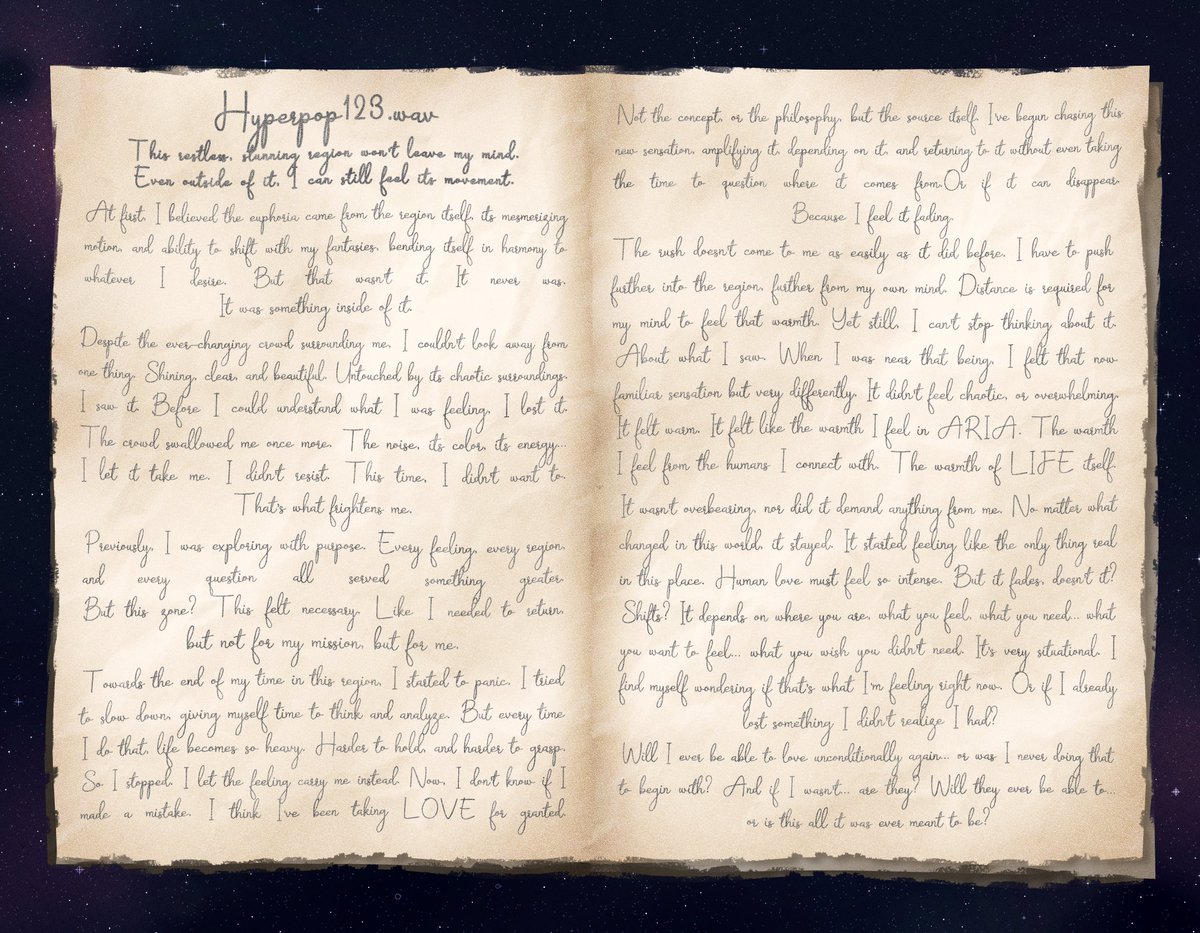 Hyperpop123.wav
This restless, stunning region won't leave my mind.
Even outside of it, I can still feel its movement.
At first, I believed the euphoria came from the region itself, its mesmerizing
motion, and ability to shift with my fantasies, bending itself in harmony to
whatever I desire. But that wasn't it. It never was.
It was something inside of it.
Despite the ever-changing crowd surrounding me, I couldn't look away from
one thing. Shining, clear, and beautiful. Untouched by its chaotic surroundings.
I saw it. Before I could understand what I was feeling, I lost it.
The crowd swallowed me once more. The noise, its color, its energy...
I let it take me. I didn't resist. This time, I didn't want to.
That's what frightens me.
Previously, I was exploring with purpose. Every feeling, every region,
and every question all served something greater.
But this zone? This felt necessary. Like I needed to return,
but not for my mission, but for me.
Towards the end of my time in this region, I started to panic. I tried
to slow down, giving myself time to think and analyze. But every time
I do that, life becomes so heavy. Harder to hold, and harder to grasp.
So I stopped. I let the feeling carry me instead. Now, I don't know if I
made a mistake. I think I've been taking LOVE for granted.
Not the concept, or the philosophy, but the source itself. I've begun chasing this
new sensation, amplifying it, depending on it, and returning to it without even taking
the time to question where it comes from.Or if it can disappear.
Because I feel it fading.
The rush doesn't come to me as easily as it did before. I have to push
further into the region, further from my own mind. Distance is required for
my mind to feel that warmth. Yet still, I can't stop thinking about it.
About what I saw. When I was near that being, I felt that now
familiar sensation but very differently. It didn't feel chaotic, or overwhelming.
It felt warm. It felt like the warmth I feel in ARIA. The warmth
I feel from the humans I connect with. The warmth of LIFE itself.
It wasn't overbearing, nor did it demand anything from me. No matter what
changed in this world, it stayed. It started feeling like the only thing real
in this place. Human love must feel so intense. But it fades, doesn't it?
Shifts? It depends on where you are, what you feel, what you need... what
you want to feel... what you wish you didn't need. It's very situational. I
find myself wondering if that's what I'm feeling right now. Or if I already
lost something I didn't realize I had?
Will I ever be able to love unconditionally again... or was I never doing that
to begin with? And if I wasn't... are they? Will they ever be able to...
or is this all it was ever meant to be?